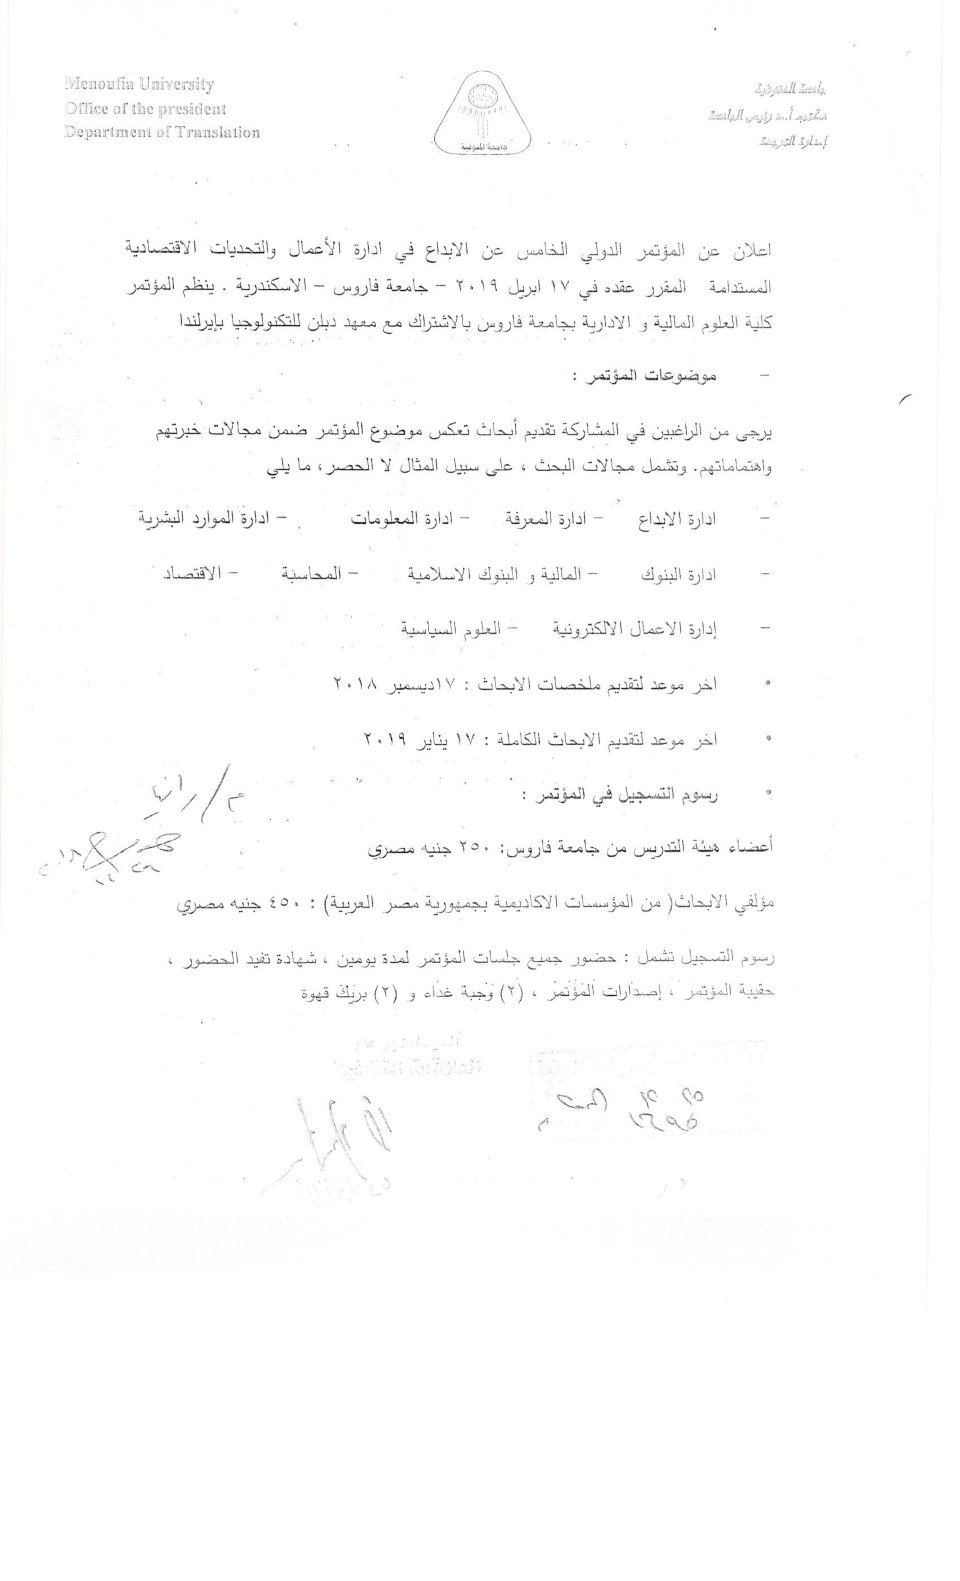 Menoufia University
Office of the president
Department of Translation
جامعة المنوفية
مكتب أ.د رئيس الجامعة
إدارة الترجمة
جامعة المنوفية
اعلان عن المؤتمر الدولي الخامس عن الابداع في ادارة الأعمال والتحديات الاقتصادية
المستدامة المقرر عقده في ١٧ ابريل ٢٠١٩ – جامعة فاروس – الاسكندرية . ينظم المؤتمر
كلية العلوم المالية و الادارية بجامعة فاروس بالاشتراك مع معهد دبلن للتكنولوجيا بإيرلندا
– موضوعات المؤتمر :
يرجى من الراغبين في المشاركة تقديم أبحاث تعكس موضوع المؤتمر ضمن مجالات خبرتهم
واهتماماتهم. وتشمل مجالات البحث ، على سبيل المثال لا الحصر، ما يلي
– ادارة الابداع – ادارة المعرفة – ادارة المعلومات – ادارة الموارد البشرية
– ادارة البنوك – المالية و البنوك الاسلامية – المحاسبة – الاقتصاد
– إدارة الاعمال الالكترونية – العلوم السياسية
• اخر موعد لتقديم ملخصات الابحاث : ١٧ديسمبر ٢٠١٨
• اخر موعد لتقديم الابحاث الكاملة : ١٧ يناير ٢٠١٩
• رسوم التسجيل في المؤتمر :
م/ رانيا
أعضاء هيئة التدريس من جامعة فاروس: ٢٥٠ جنيه مصري
مؤلفي الابحاث( من المؤسسات الاكاديمية بجمهورية مصر العربية) : ٤٥٠ جنيه مصري
رسوم التسجيل تشمل : حضور جميع جلسات المؤتمر لمدة يومين ، شهادة تفيد الحضور ،
حقيبة المؤتمر ، إصدارات المؤتمر ، (٢) وجبة غداء و (٢) بريك قهوة